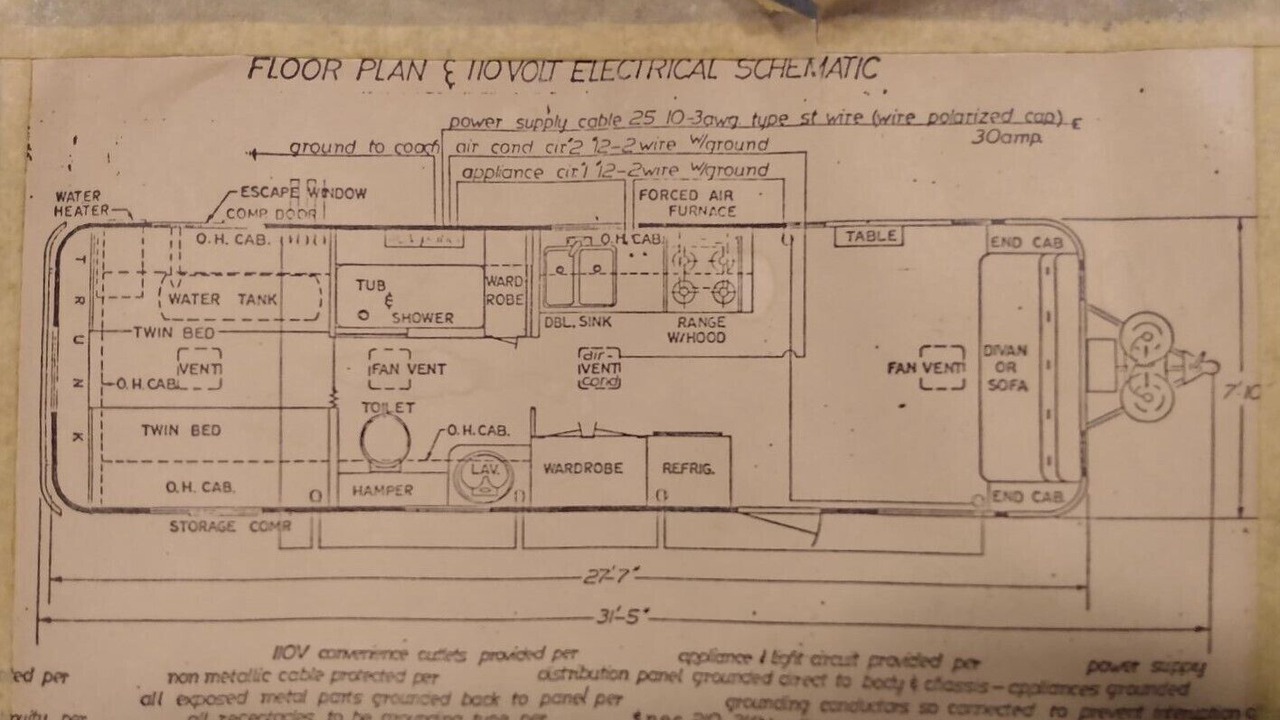 FLOOR PLAN & 110 VOLT ELECTRICAL SCHEMATIC
power supply cable 25 10-3awg type st wire (wire polarized cap) &
30amp.
ground to coach
air cond cir'2 12-2 wire w/ground
appliance cir'1 12-2 wire w/ground
WATER
HEATER
ESCAPE WINDOW
COMP. DOOR
FORCED AIR
FURNACE
O.H. CAB.
O.H. CAB.
TABLE
END CAB
TRUNK
WATER TANK
TUB
&
SHOWER
WARD
ROBE
DBL. SINK
RANGE
W/HOOD
TWIN BED
VENT
FAN VENT
air-
VENT
cond
FAN VENT
DIVAN
OR
SOFA
O.H. CAB.
TOILET
7'-10
TWIN BED
O.H. CAB.
LAV.
WARDROBE
REFRIG.
O.H. CAB.
HAMPER
END CAB.
STORAGE COMP.
27'-7"
31'-5"
110V convenience outlets provided per
appliance & light circuit provided per
power supply
per
non metallic cable protected per
distribution panel grounded direct to body & chassis - appliances grounded
all exposed metal parts grounded back to panel per
grounding conductors so connected to prevent
per
all receptacles to be grounding type per